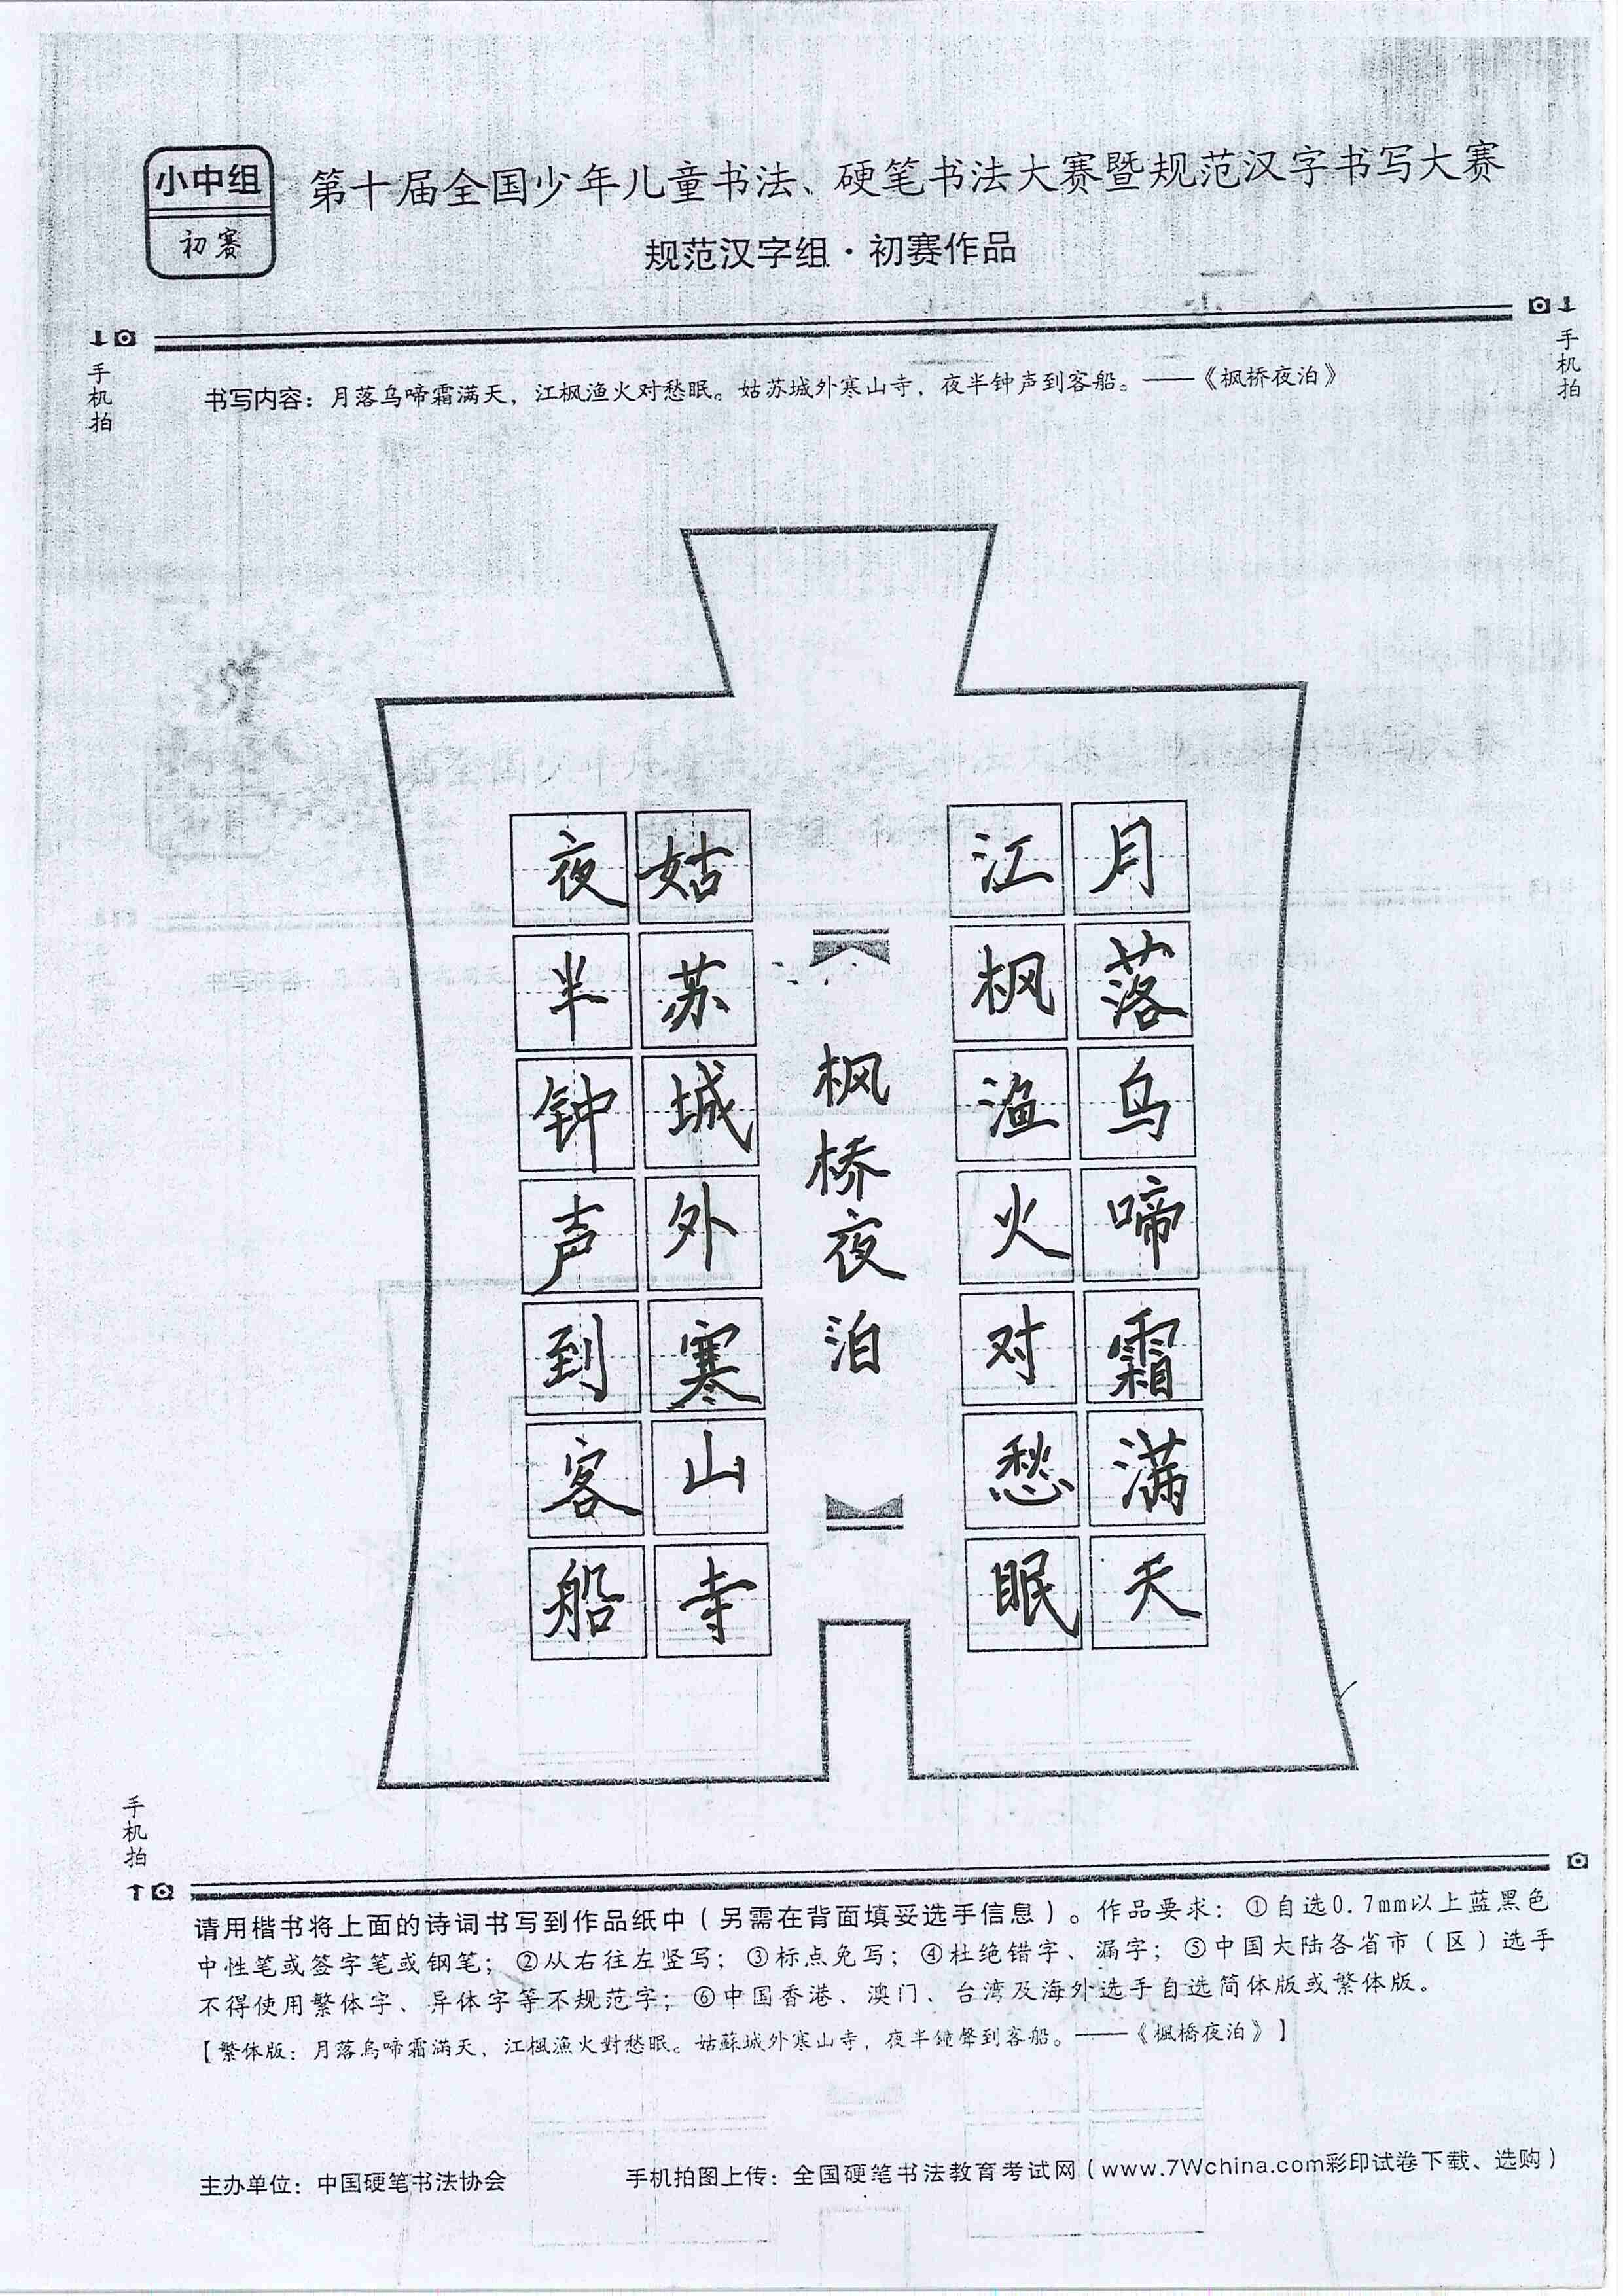 小中组
初赛
第十届全国少年儿童书法、硬笔书法大赛暨规范汉字书写大赛
规范汉字组·初赛作品
手机拍
手机拍
书写内容：月落乌啼霜满天，江枫渔火对愁眠。姑苏城外寒山寺，夜半钟声到客船。——《枫桥夜泊》
月落乌啼霜满天
江枫渔火对愁眠
枫桥夜泊
姑苏城外寒山寺
夜半钟声到客船
手机拍
请用楷书将上面的诗词书写到作品纸中（另需在背面填妥选手信息）。作品要求：①自选0.7mm以上蓝黑色
中性笔或签字笔或钢笔；②从右往左竖写；③标点免写；④杜绝错字、漏字；⑤中国大陆各省市（区）选手
不得使用繁体字、异体字等不规范字；⑥中国香港、澳门、台湾及海外选手自选简体版或繁体版。
【繁体版：月落烏啼霜滿天，江楓漁火對愁眠。姑蘇城外寒山寺，夜半鐘聲到客船。——《楓橋夜泊》】
主办单位：中国硬笔书法协会
手机拍图上传：全国硬笔书法教育考试网（www.7Wchina.com彩印试卷下载、选购）